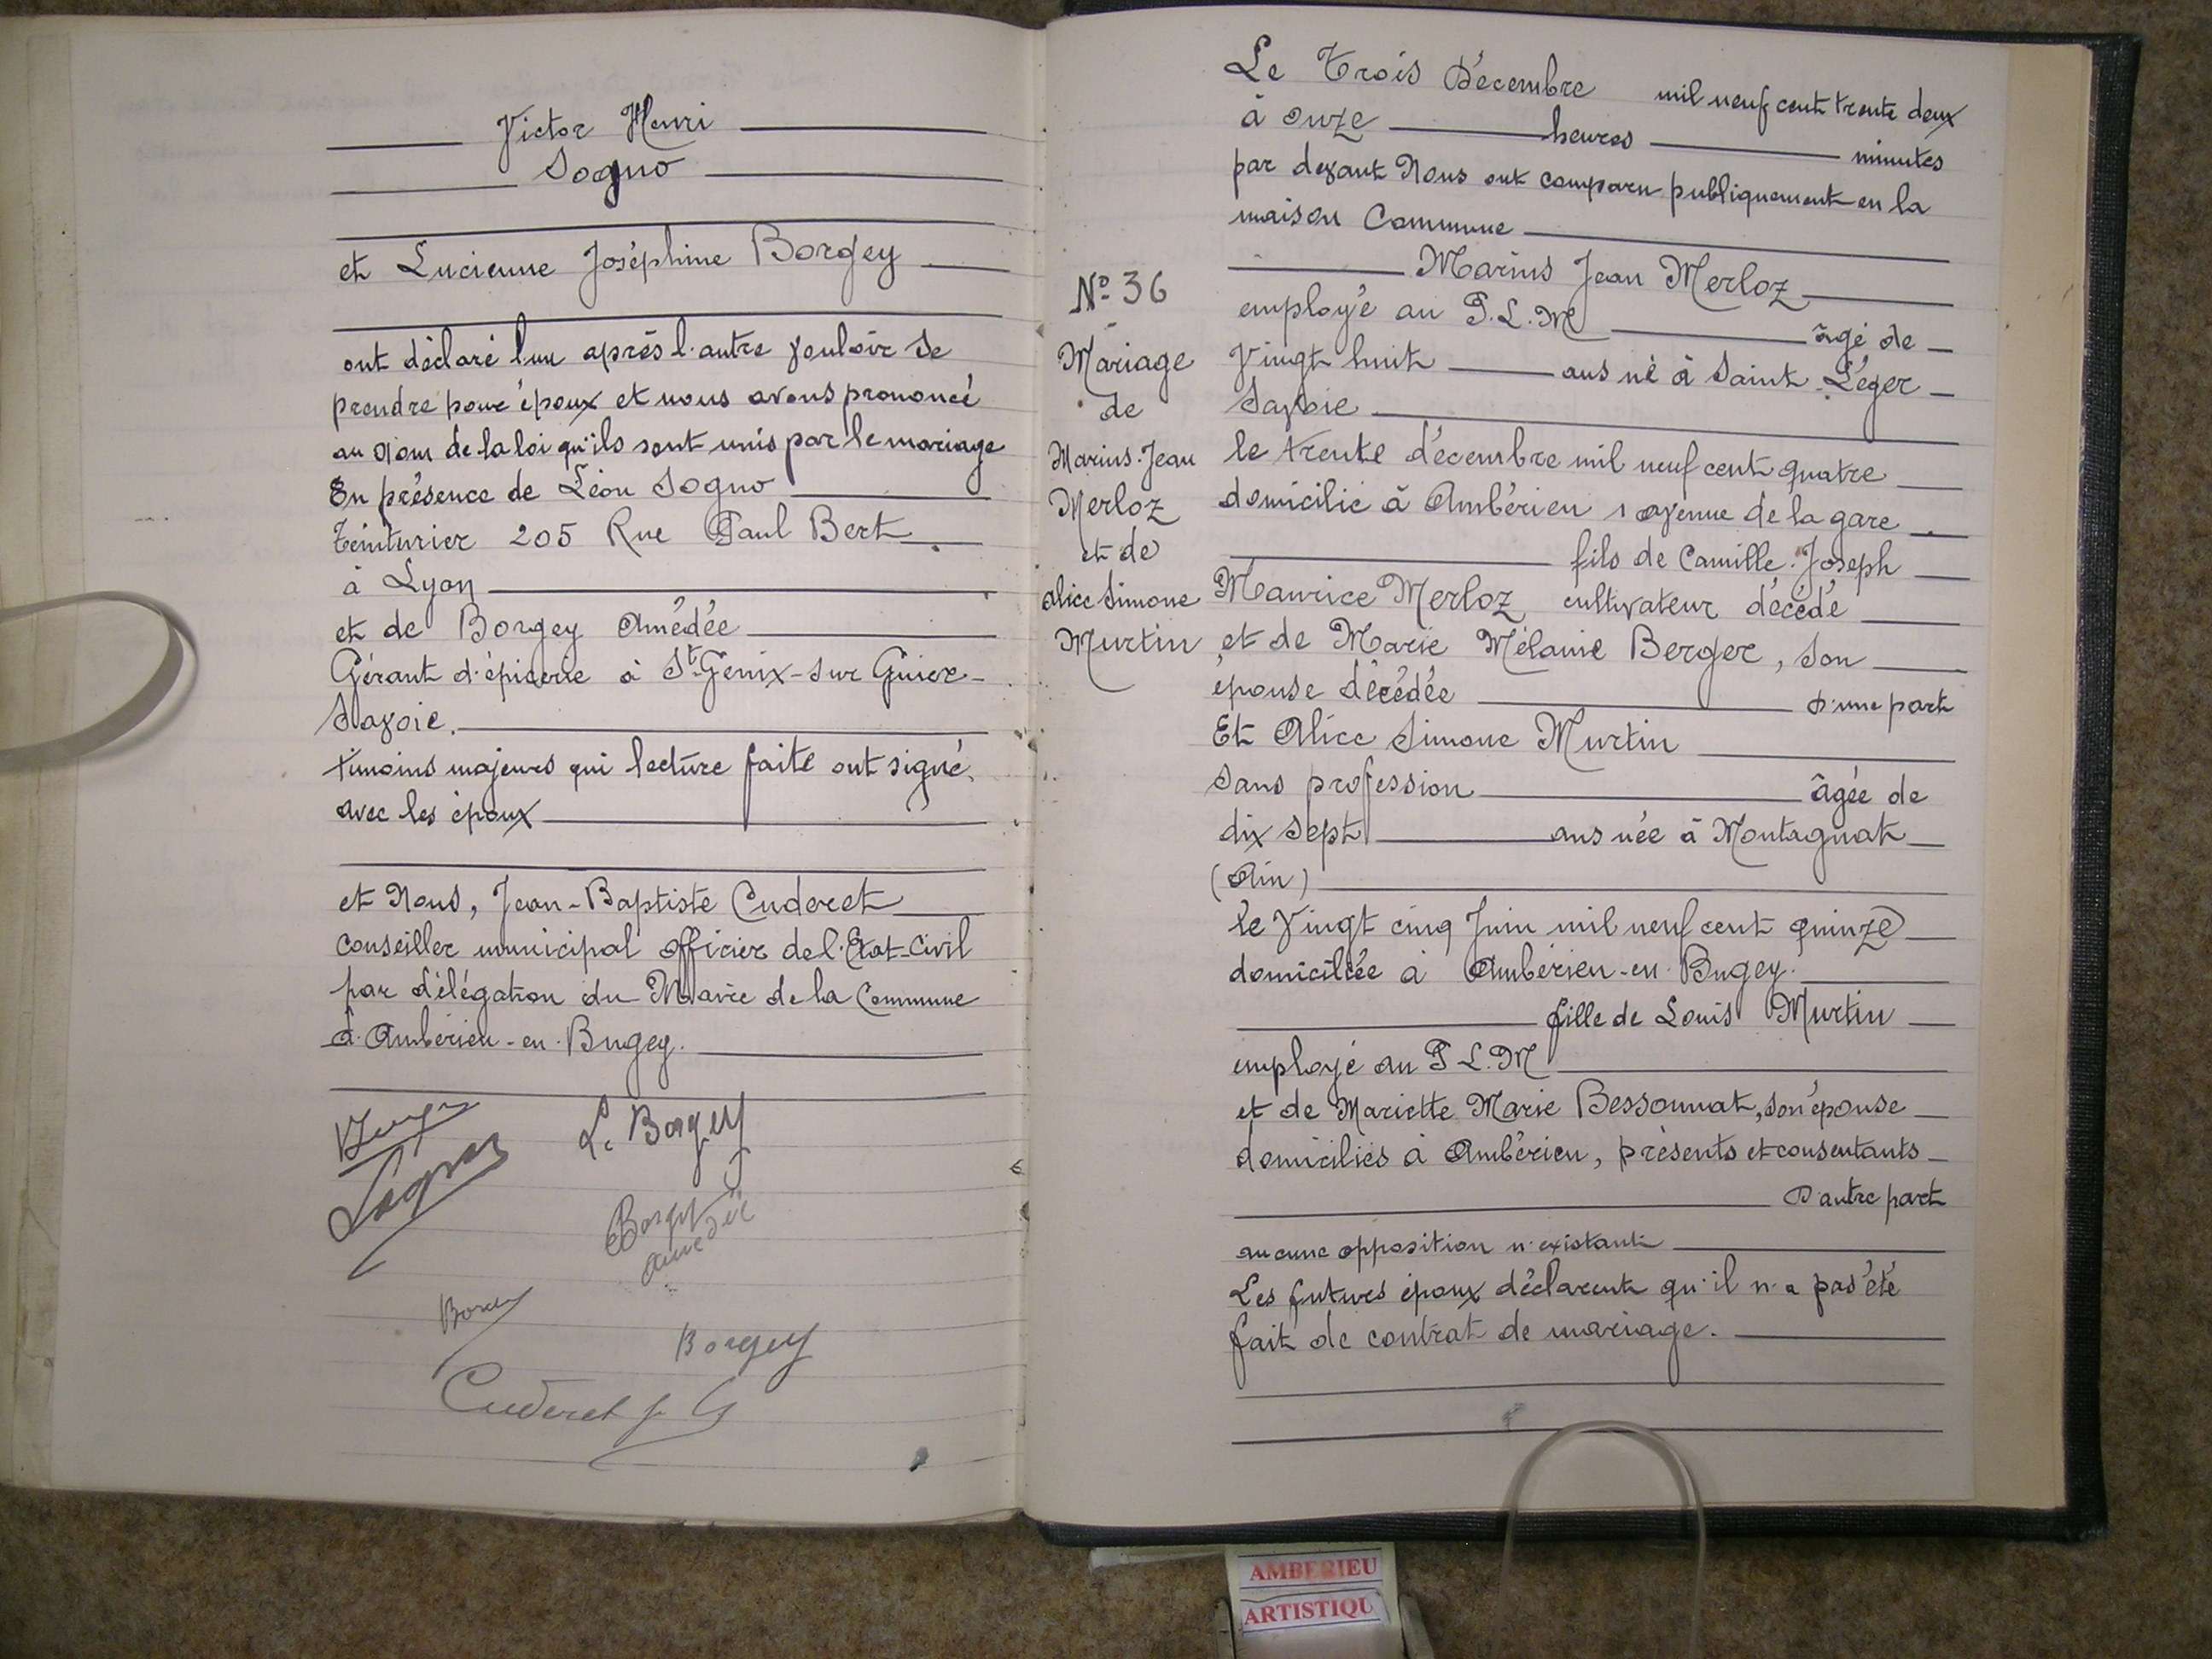 Victor Henri
Sogno
et Lucienne Joséphine Borgey
ont déclaré l'un après l'autre vouloir se
prendre pour époux et nous avons prononcé
au nom de la loi qu'ils sont unis par le mariage
En présence de Léon Sogno
Teinturier 205 Rue Paul Bert
à Lyon
et de Borgey Amédée
Gérant d'épicerie à St-Genix-sur Guier-
Savoie.
témoins majeurs qui lecture faite ont signé,
avec les époux
et Nous, Jean-Baptiste Cuderet
conseiller municipal officier de l'Etat-Civil
par délégation du Maire de la Commune
d'Ambérieu-en-Bugey.
L. Borgey
Borgey
amédée
Borgey
Cuderet
Le Trois Décembre mil neuf cent trente deux
à onze heures minutes
par devant Nous ont comparu publiquement en la
maison Commune
Marius Jean Merloz
employé au P.L.M âgé de
Vingt huit ans né à Saint Léger
Savoie
le trente décembre mil neuf cent quatre
domicilié à Ambérieu 1 avenue de la gare
fils de Camille Joseph
Maurice Merloz cultivateur décédé
et de Marie Mélanie Berger, son
épouse décédée D'une part
Et Alice Simone Murtin
Sans profession âgée de
dix sept ans née à Montagnat
(Ain)
le Vingt cinq Juin mil neuf cent quinze
domiciliée à Ambérieu-en-Bugey.
fille de Louis Murtin
employé au P L.M
et de Mariette Marie Bessonnat, son épouse
domiciliés à Ambérieu, présents et consentants
D'autre part
aucune opposition n'existant
Les futurs époux déclarent qu'il n'a pas été
fait de contrat de mariage.
No 36
Mariage
de
Marius-Jean
Merloz
et de
Alice Simone
Murtin
AMBERIEU
ARTISTIQU